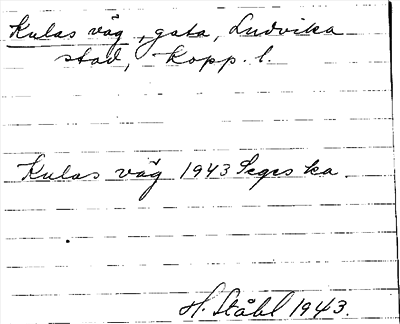 Kulas väg, gata, Ludvika
stad, Kopp. l.
Kulas väg 1943 Seges ka
H. Ståhl 1943.